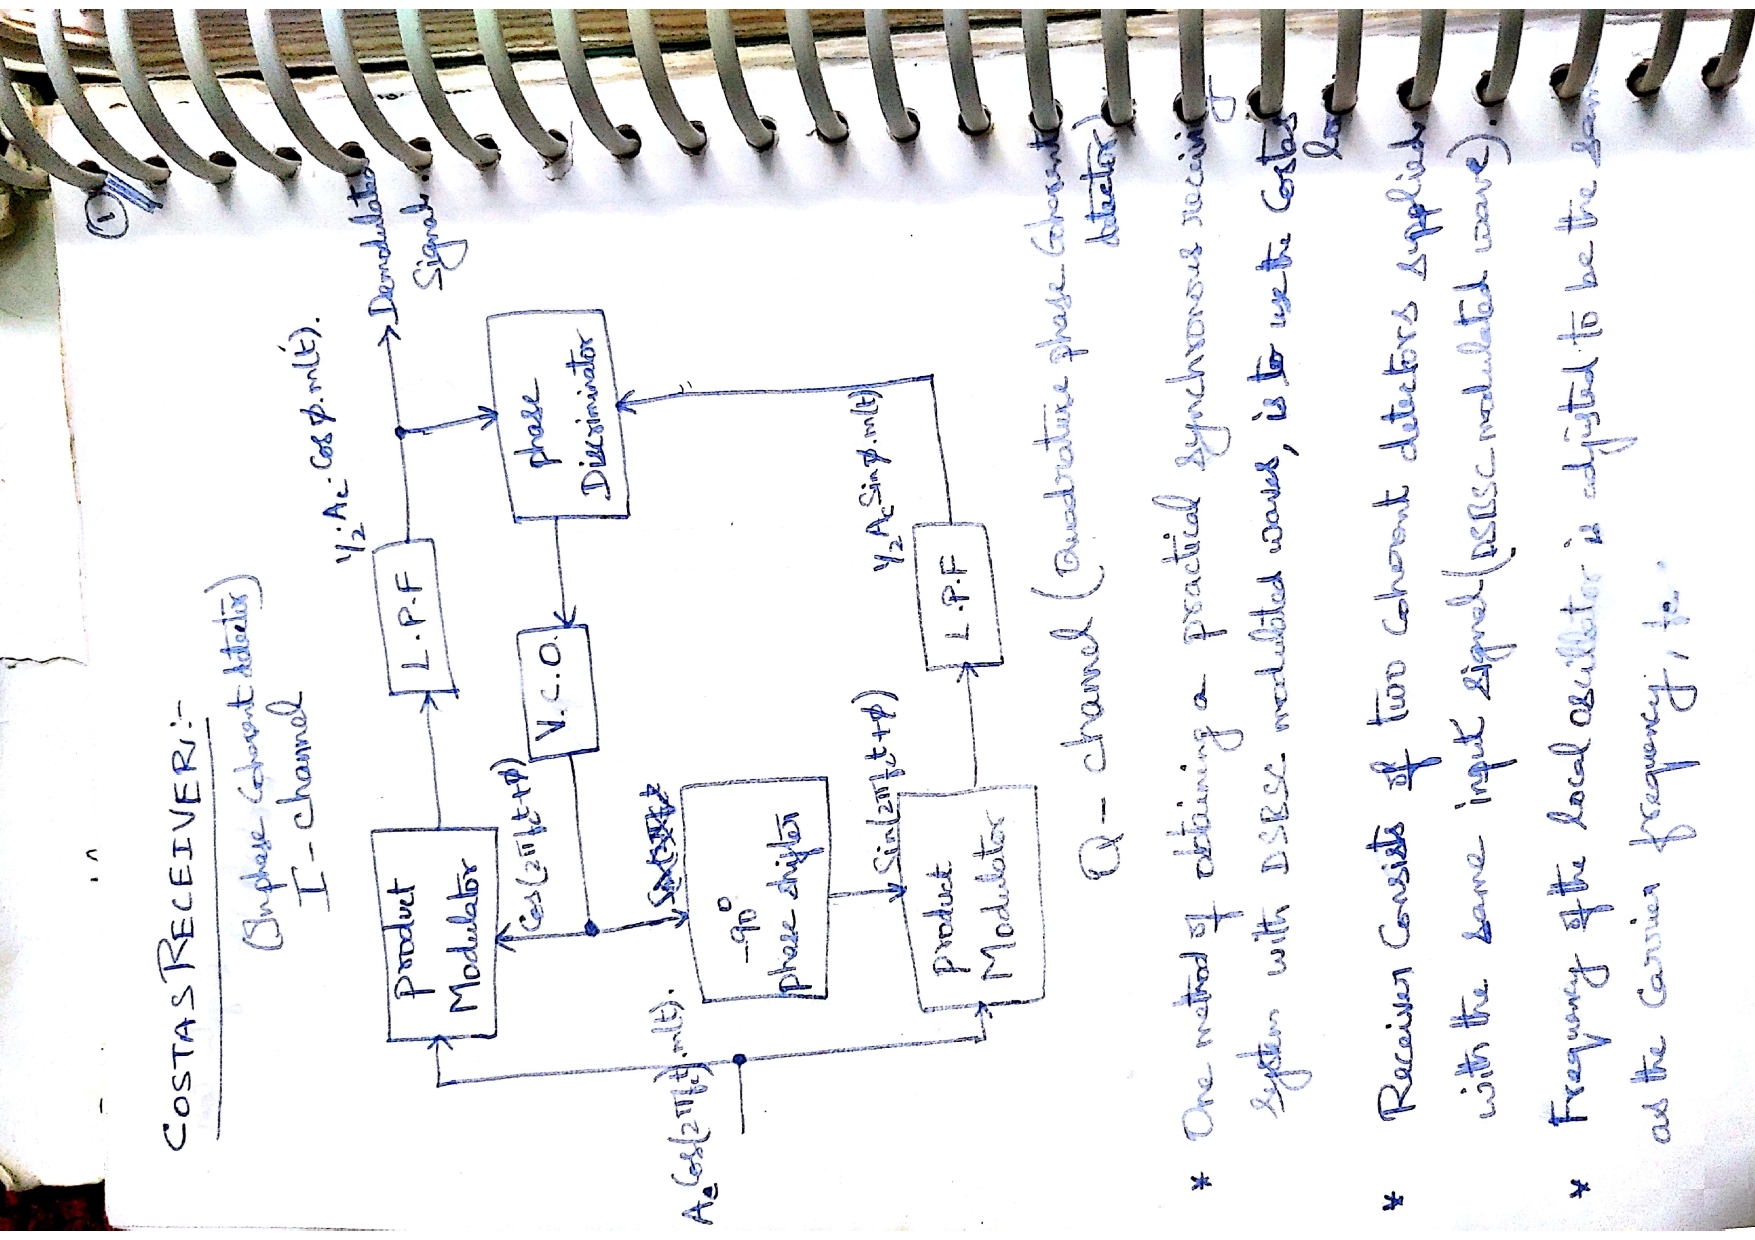 1
COSTAS RECEIVER:-
(Inphase Coherent detector)
I - channel
½.Ac.Cosφ.m(t).
Product
Modulator
L.P.F
Demodulated
Signal.
Cos(2πfct+φ)
V.C.O.
phase
Discriminator
Ac Cos(2πfct).m(t).
-90°
phase shifter
Sin(2πfct+φ)
½AcSinφ.m(t)
product
Modulator
L.P.F
Q - channel (Quadrature phase Coherent
detector)
* One method of obtaining a practical synchronous receiving
System with DSBSC modulated waves, is to use the Costas
* Receiver Consists of two coherent detectors supplied
with the same input signal (DSBSC modulated wave).
* Frequency of the local oscillator is adjusted to be the same
as the Carrier frequency, fc.